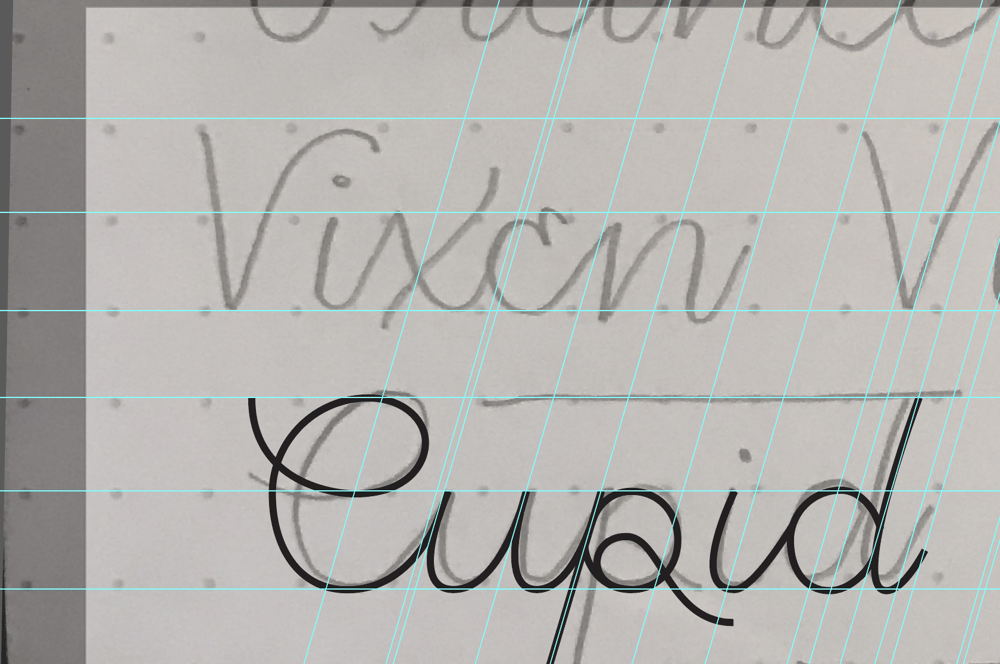 Vixen V
Cupid